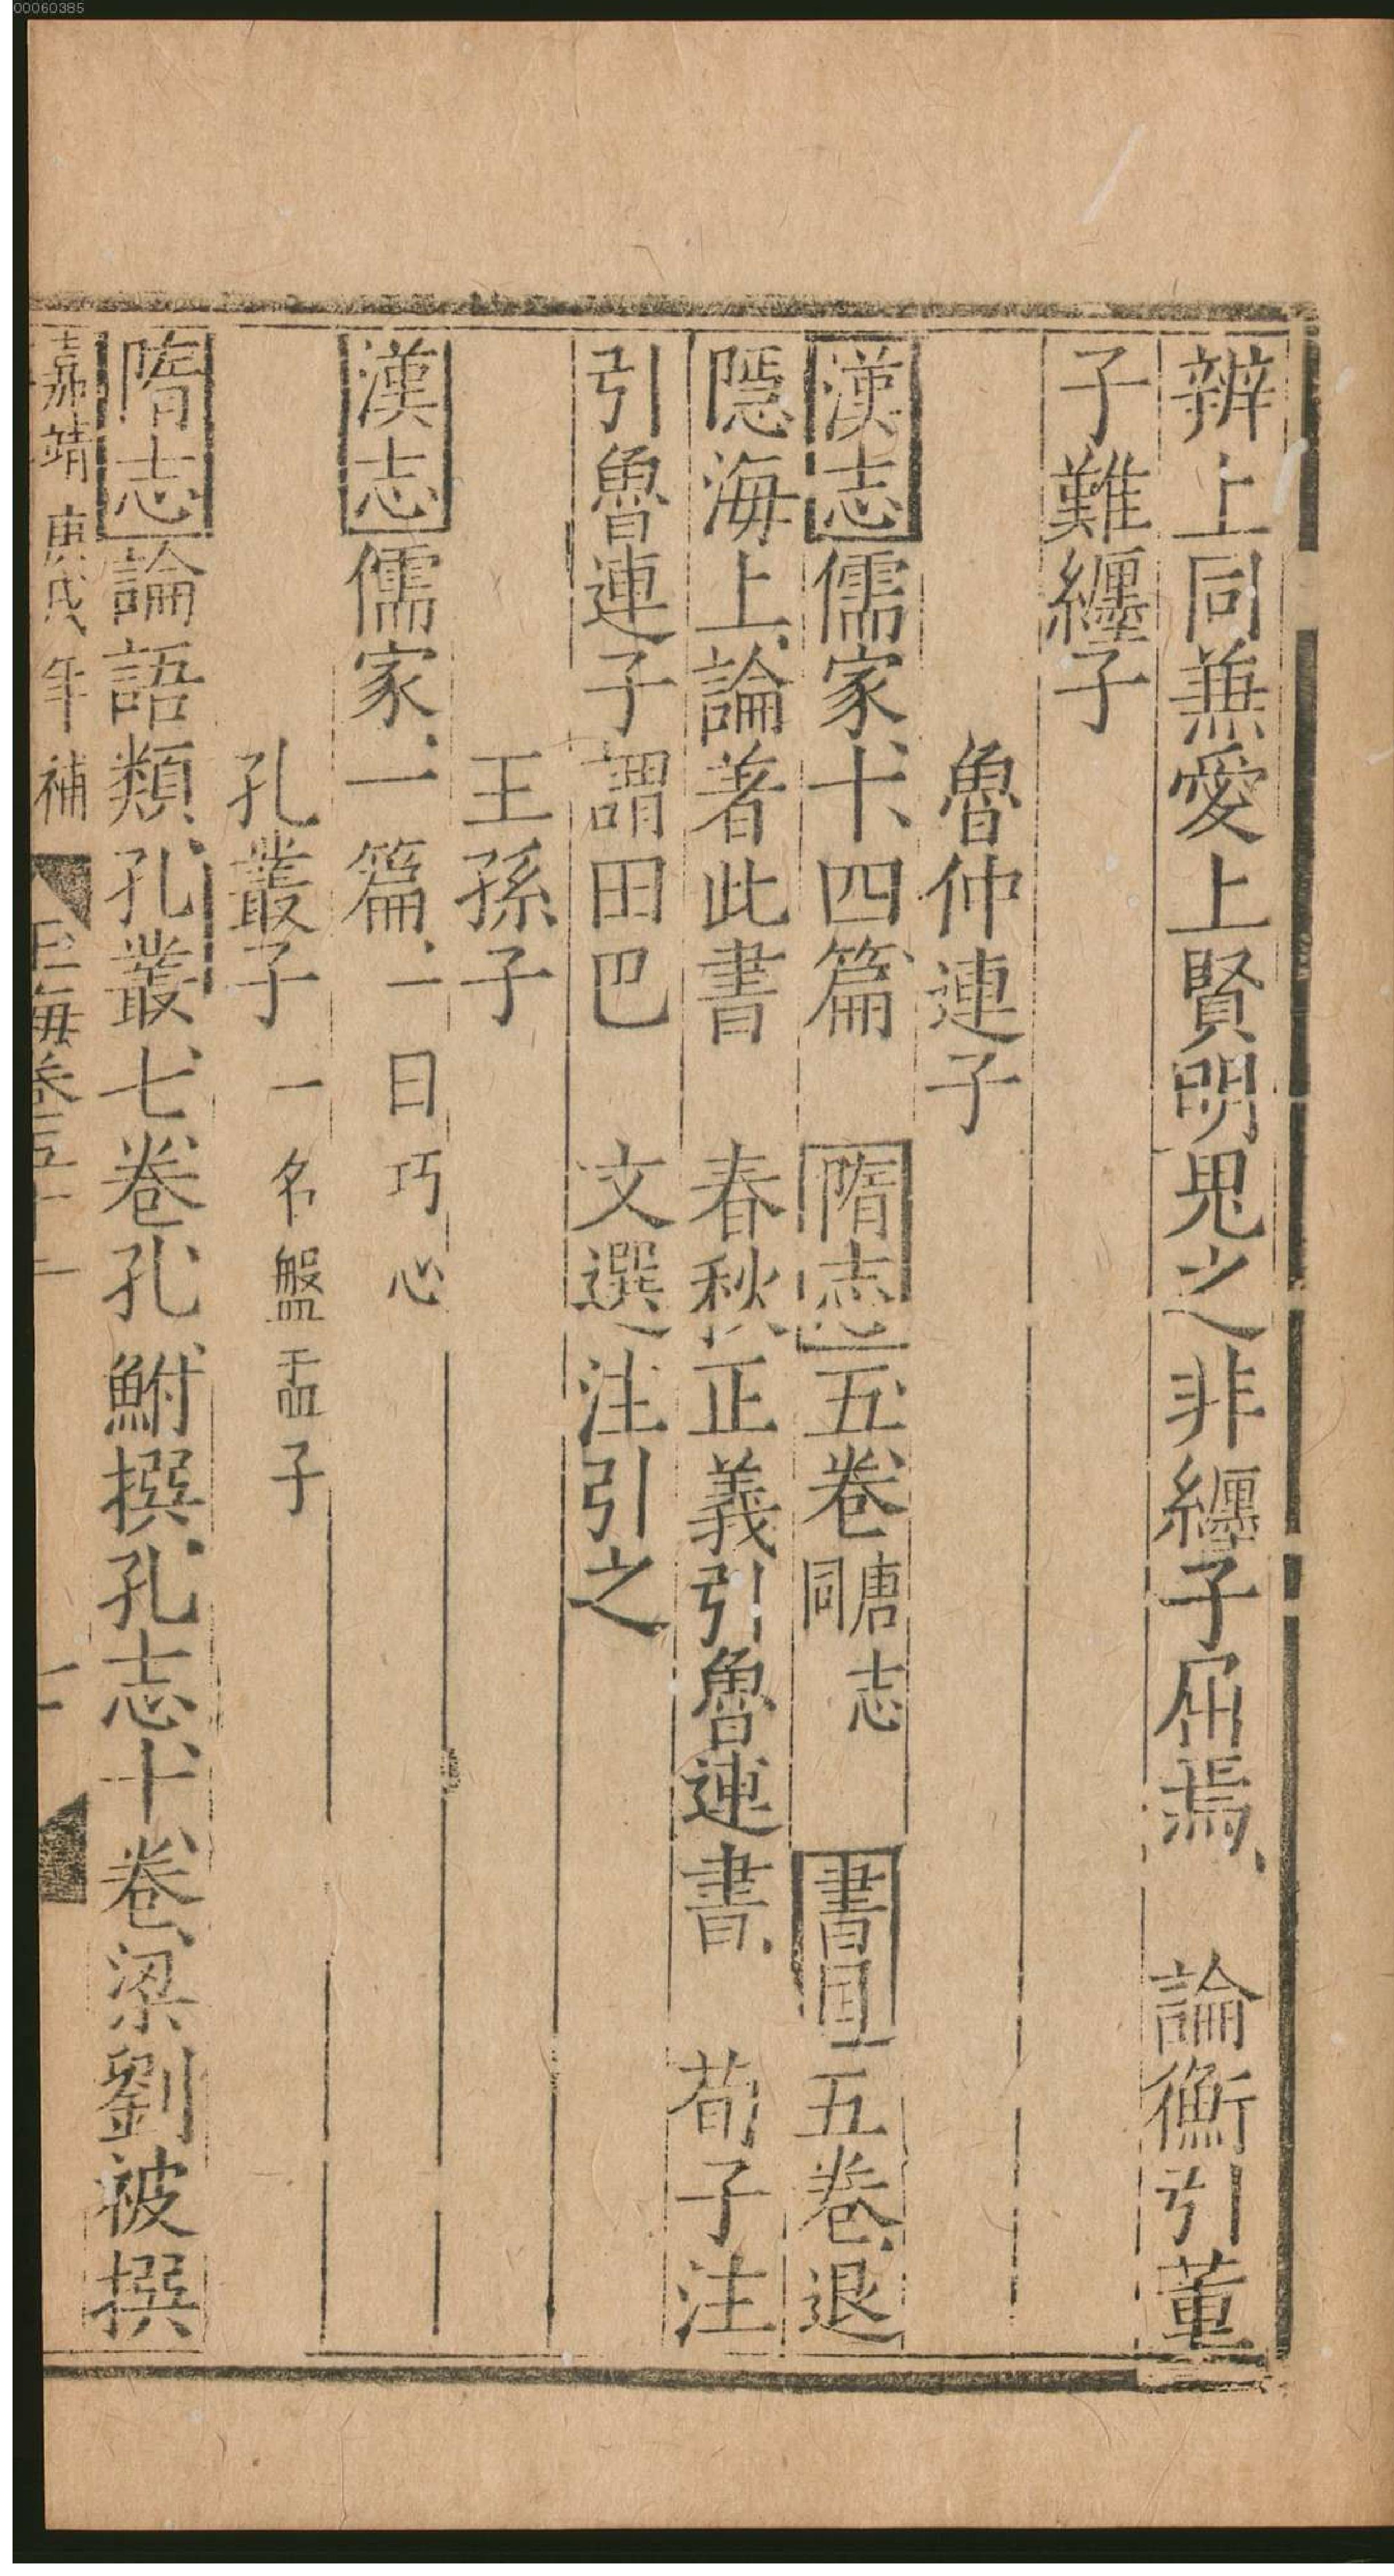 00060385
辨上同兼愛上賢明鬼之非纏子屈焉、 論衡引董
子難纏子
魯仲連子
漢志儒家十四篇 隋志五卷唐志同 書目五卷退
隱海上論著此書 春秋正義引魯連書 荀子注
引魯連子謂田巴 文選注引之
王孫子
漢志儒家一篇一曰巧心
孔叢子一名盤盂子
隋志論語類孔叢七卷孔鮒撰孔志十卷梁劉被撰
嘉靖庚戌年補 玉海卷五十三 十一